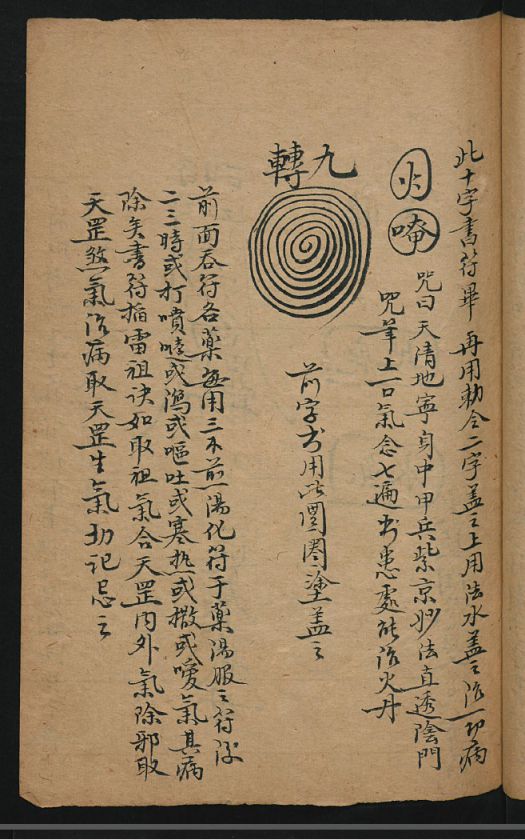 此十字書符畢再用勅令二字蓋之上用法水蓋之治一切病
火 唵 咒曰天清地寧身中甲兵紫京妙法直透陰門
咒筆上一口氣念七遍书患處能治火丹
九轉 前字书用此圈圈塗蓋之
前面吞符各藥每用三不前湯化符于藥湯服之符後
二三時或打噴嚏或瀉或嘔吐或寒热或撒或噯氣其病
除矣書符掐雷祖诀如取祖氣合天罡内外氣除邪取
天罡煞氣治病取天罡生氣切记忌之